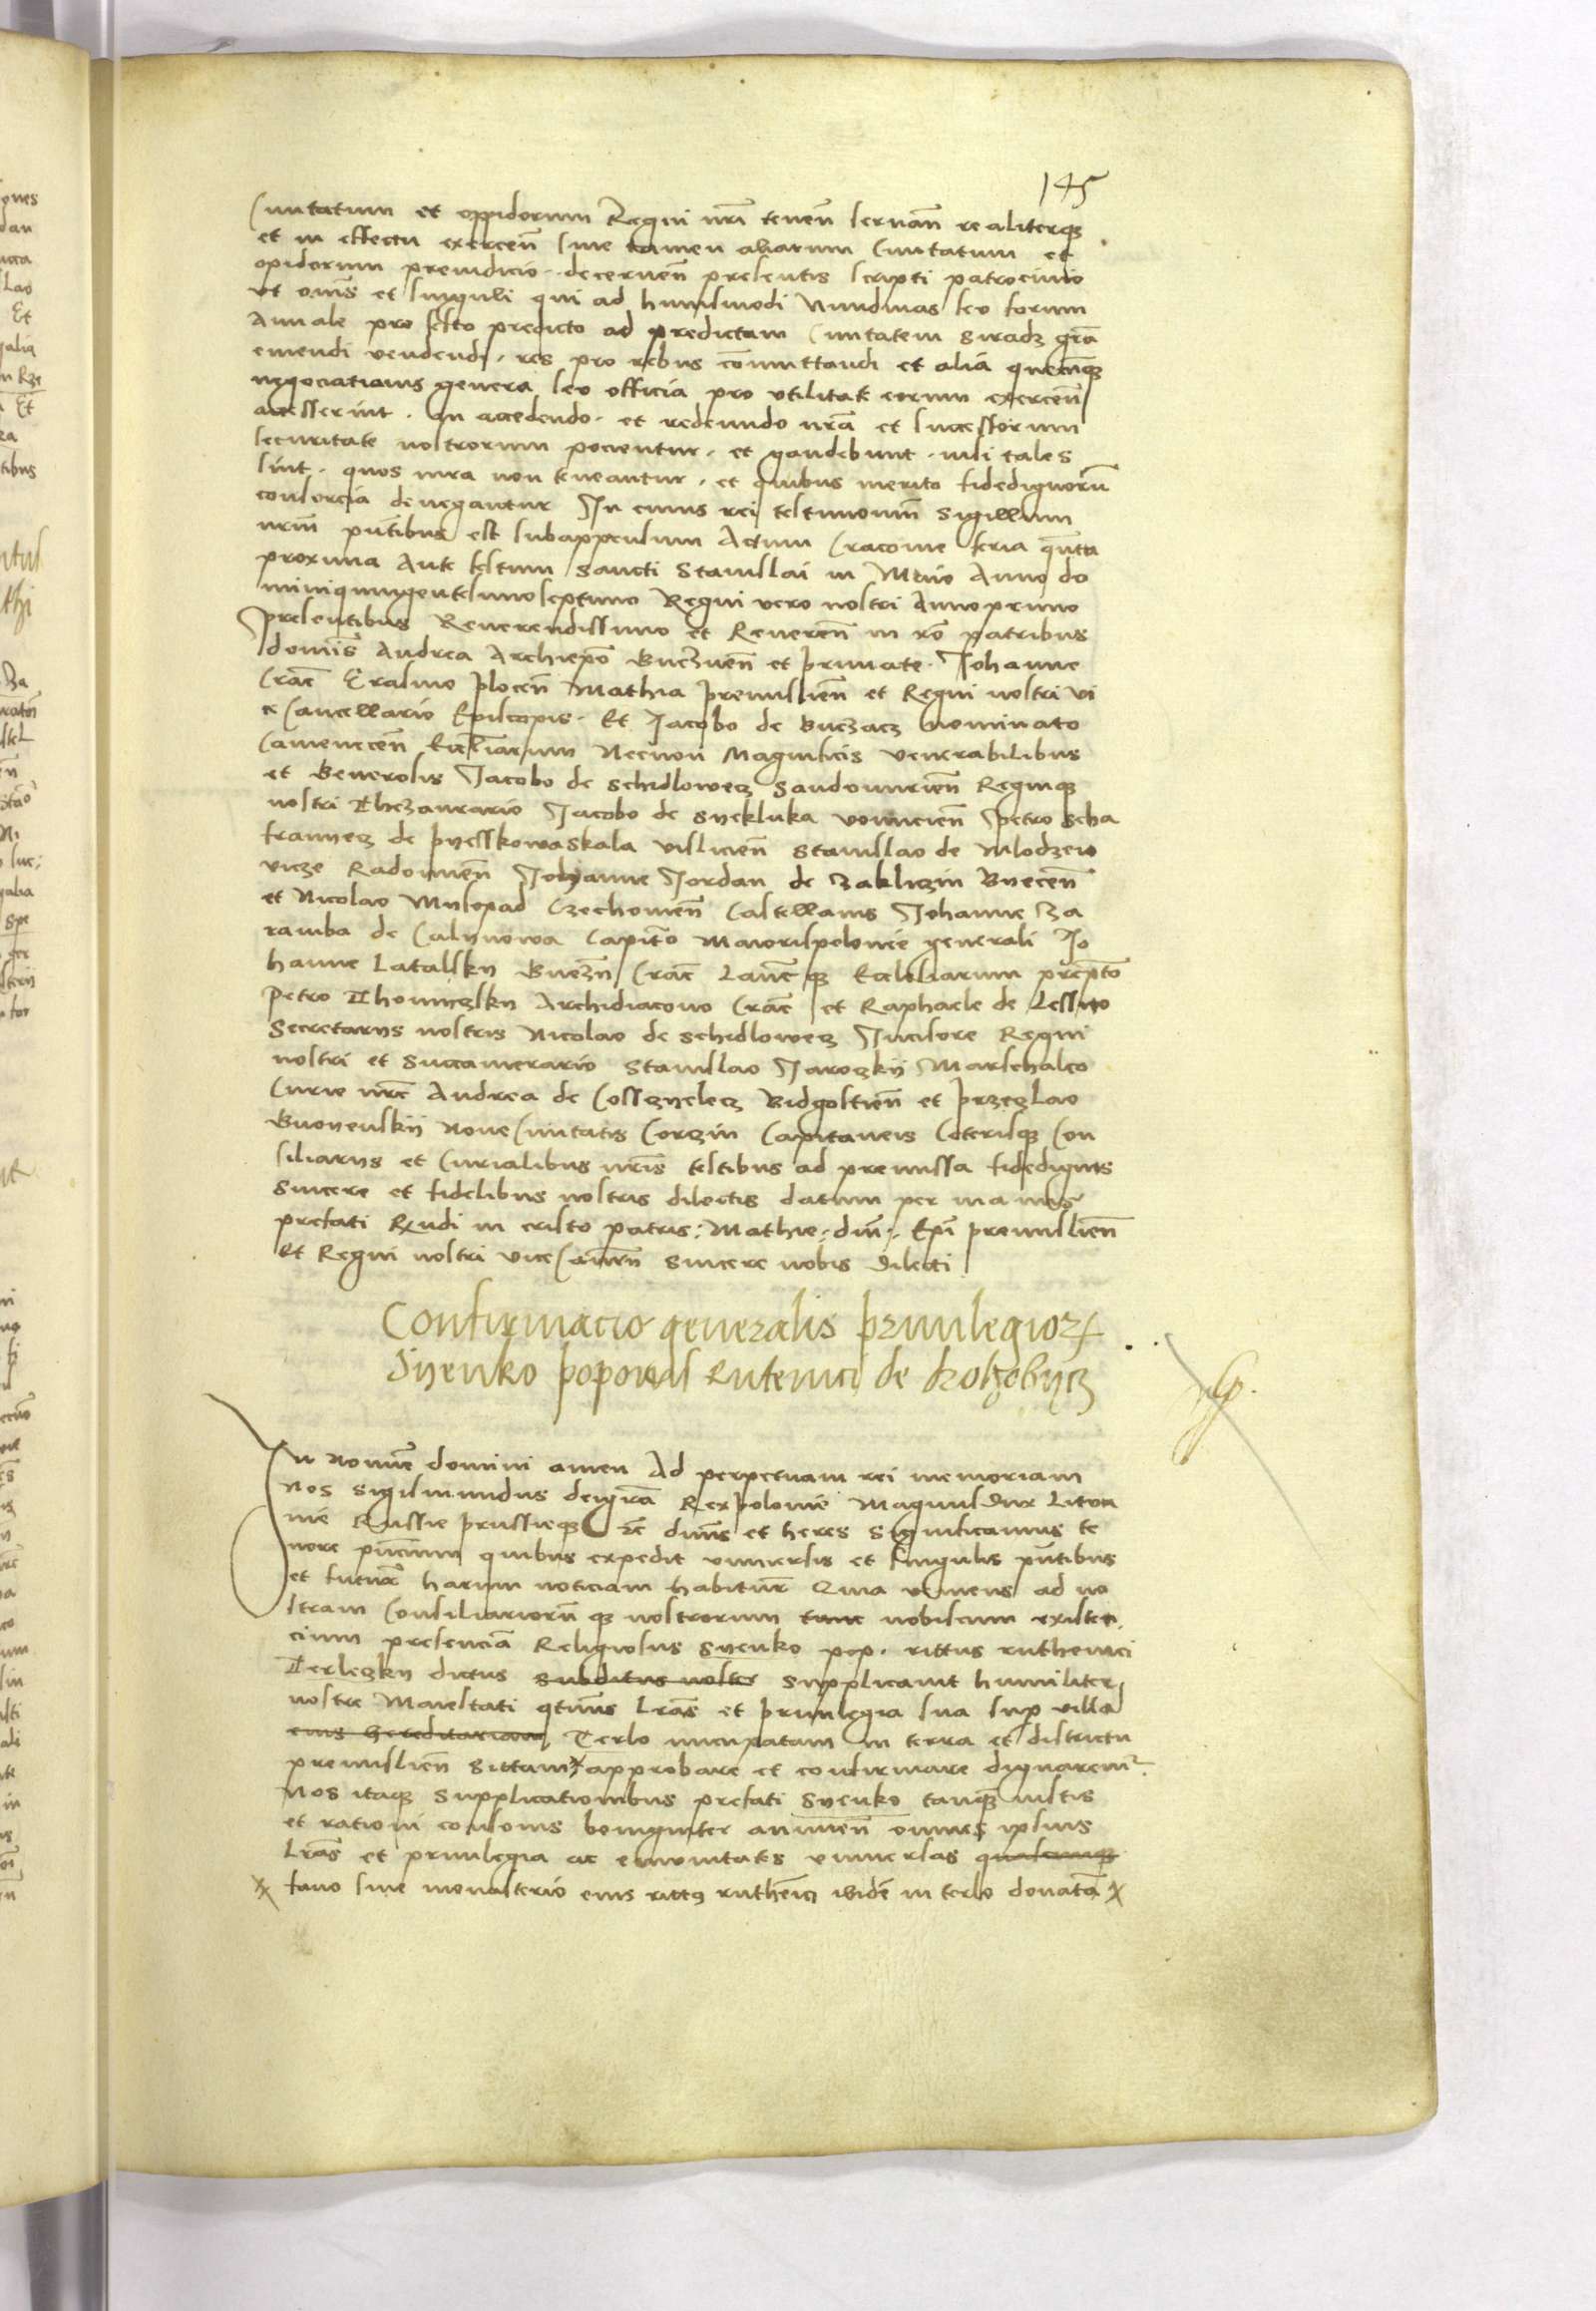 145
Civitatum et oppidorum Regni nr̄i tenen̄ servan̄ realiterq̄
et in effectu exercen̄ sine tamen aliarum Civitatum et
opidorum preiudicio. decernen̄ presentis scripti patrocinio
ut om̄s et singuli qui ad huiusmodi Nundinas seu forum
Annale pro festo predicto ad predictam Civitatem Siradz gr̄a
emendi vendendi, res pro rebus com̄uttandi et alia quecūq̄
negociationis genera seu officia pro utilitate eorum exercen̄
accesserint. In accedendo. et redeundo nr̄a et successorum
securitate nostrorum pocientur. et gaudebunt. nisi tales
sint. quos iura non teneantur. et quibus merito fidedignorū
consorcia denegantur In cuius rei testimoniū Sigillum
nrm̄ pn̄tibus est subappensum Actum Cracovie feria qn̄ta
proxima Ante festum Sancti Stanislai in Maio Anno do
mini quingentesimo septimo Regni vero nostri Anno primo
Presentibus Reverendissimo et Reveren̄ in xo patribus
domīs Andrea Archiepō Gneznen̄ et primate. Johanne
Crac̄ Erasmo plocen̄ Mathia premislien̄ et Regni nostri vi
ce Cancellario Episcopis. Et Jacobo de Buczacz nominato
Camenecen̄ Eccl̄iarum Necnon Magnificis venerabilibus
et Generosis Jacobo de Schidlowecz Sandomirien̄ Regniq̄
nostri Thezaurario Jacobo de Syekluka voinicien̄ Petro Scha
franyecz de pyesskowaskala vislicien̄ Stanislao de Mlodzeio
vicze Radomien̄ Johanne Jordan de Zakliczin Byecen̄
et Nicolao Mysopad Czechovien̄ Castellanis Johanne Za
ramba de Calynowa Capitō Maiorispolonie generali Jo
hanne Latalsky Gnezn̄ Crac̄ Lanc̄ q̄ Ecclesiarum prepto
Petro Thomiczky Archidiacono Crac̄ et Raphaele de Lessno
Secretariis nostris Nicolao de Schidlowecz Incisore Regni
nostri et Succamerario Stanislao Jaroczky Marschalco
Curie nr̄e Andrea de Cosszyelecz Bidgostien̄ et przeczlao
Nove Civitatis Corczin Capitaneis Ceterisq̄ Con
siliariis et Curialibus nr̄is testibus ad premissa fidedignis
Sincere et fidelibus nostris dilectis datum per manus
prefati Rx̄ndi in cristo patris: Mathie: din̄: Ep̄i premislien̄
Et Regni nostri vice Cancn̄ Sincere nobis dilecti
Confirmacio generalis privilegior
Syenko poponis Rutenici de drohobycz
In nomīe domini amen Ad perpetuam rei memoriam
Nos Sigismundus dei gr̄a Rex polonie Magnus dux Litua
nie Russie prussieq̄ etc̄ dn̄us et heres Significamus te
nore pn̄cium quibus expedit universis et singulis pn̄tibus
et futur̄ harum noticiam habitur̄ Quia veniens ad no
stram Consiliariorū q̄ nostrorum tunc nobiscum existen
cium presenciā Religiosus Syenko pop. rittus ruthenici
Terleczky dictus subditus noster supplicavit humiliter
nostre Maiestati qtn̄us Lr̄as et privilegia sua sup villā
eius hereditariam Terlo nucupatam in terra et districtu
premislien̄ Sittam ҂ approbare et confirmare dignarem̄r
Nos itaq̄ Supplicationibus prefati Syenko tanq̄ iustis
et rationi consonis benigniter annuen̄ omnes ipsius
Lr̄as et privilegia ac emunitates universas quascunq̄
҂ fano sive monasterio eius rittus ruthēici ibidē in terlo donatā ҂